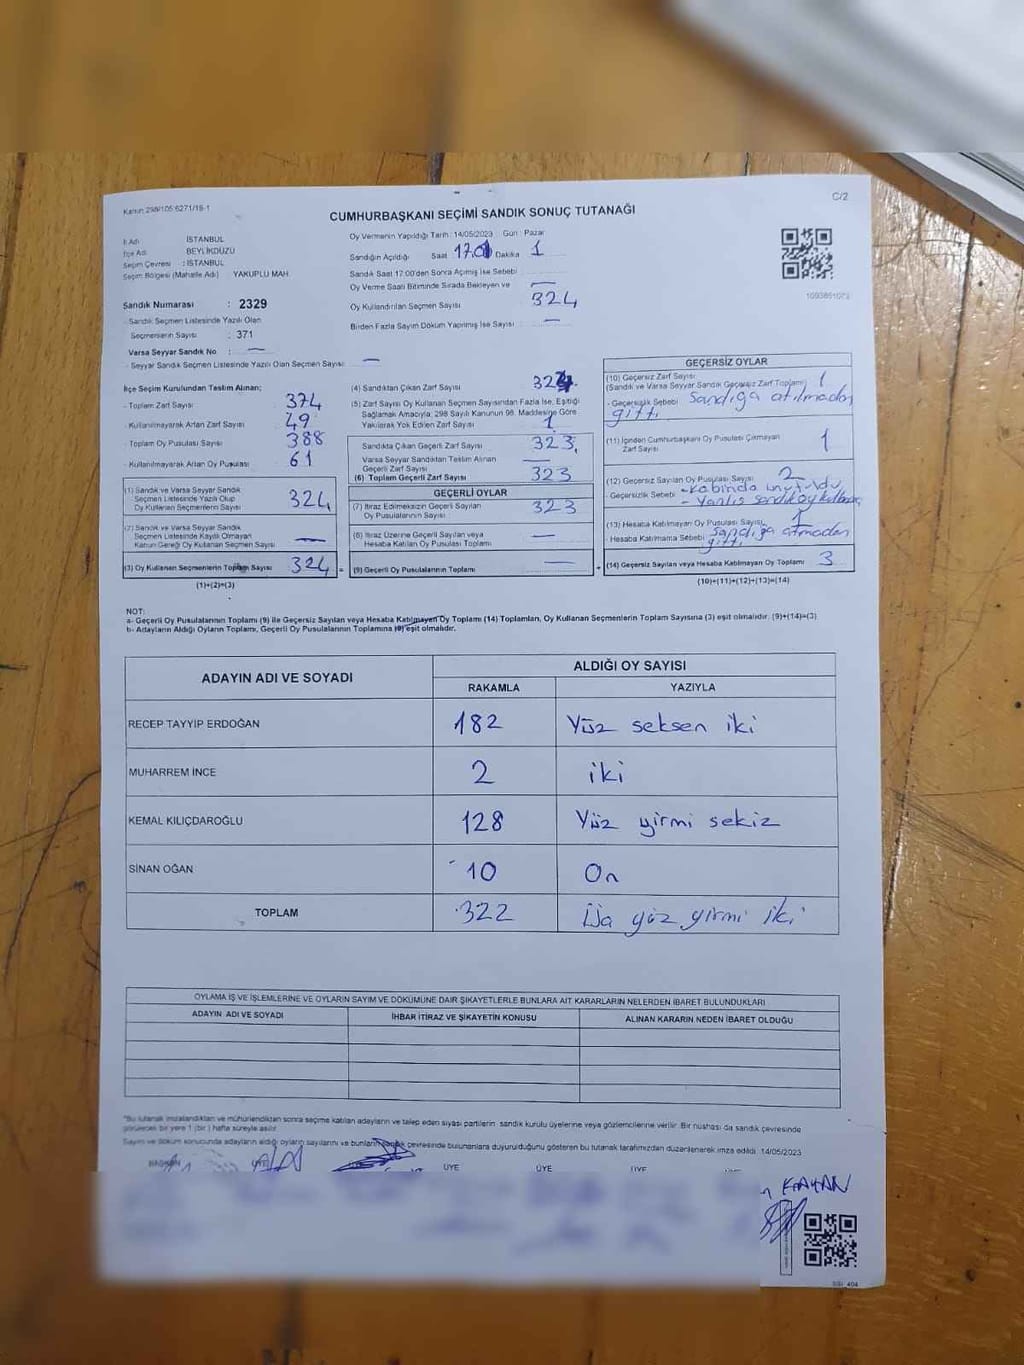 C/2
Kanun: 298/105 6271/19-1
CUMHURBAŞKANI SEÇİMİ SANDIK SONUÇ TUTANAĞI
İl Adı : İSTANBUL
İlçe Adı : BEYLİKDÜZÜ
Seçim Çevresi : İSTANBUL
Seçim Bölgesi (Mahalle Adı) : YAKUPLU MAH.
Sandık Numarası : 2329
Sandık Seçmen Listesinde Yazılı Olan
Seçmenlerin Sayısı : 371
Varsa Seyyar Sandık No : —
Seyyar Sandık Seçmen Listesinde Yazılı Olan Seçmen Sayısı : —
Oy Vermenin Yapıldığı Tarih : 14/05/2023 Gün : Pazar
Sandığın Açıldığı Saat Dakika 1
Sandık Saat 17:00'den Sonra Açılmış İse Sebebi
Oy Verme Saati Bitiminde Sırada Bekleyen ve —
Oy Kullandırılan Seçmen Sayısı 324
Birden Fazla Sayım Döküm Yapılmış İse Sayısı : —
İlçe Seçim Kurulundan Teslim Alınan;
- Toplam Zarf Sayısı 374
- Kullanılmayarak Artan Zarf Sayısı 49
- Toplam Oy Pusulası Sayısı 388
- Kullanılmayarak Artan Oy Pusulası 61
(1) Sandık ve Varsa Seyyar Sandık
Seçmen Listesinde Yazılı Olup
Oy Kullanan Seçmenlerin Sayısı 324
(2) Sandık ve Varsa Seyyar Sandık
Seçmen Listesinde Kayıtlı Olmayan
Kanun Gereği Oy Kullanan Seçmen Sayısı —
(3) Oy Kullanan Seçmenlerin Toplam Sayısı 324 =
(1)+(2)=(3)
(4) Sandıktan Çıkan Zarf Sayısı
(5) Zarf Sayısı Oy Kullanan Seçmen Sayısından Fazla İse, Eşitliği
Sağlamak Amacıyla; 298 Sayılı Kanunun 98. Maddesine Göre
Yakılarak Yok Edilen Zarf Sayısı 1
Sandıkta Çıkan Geçerli Zarf Sayısı 323
Varsa Seyyar Sandıktan Teslim Alınan
Geçerli Zarf Sayısı —
(6) Toplam Geçerli Zarf Sayısı 323
GEÇERLİ OYLAR
(7) İtiraz Edilmeksizin Geçerli Sayılan
Oy Pusulalarının Sayısı 323
(8) İtiraz Üzerine Geçerli Sayılan veya
Hesaba Katılan Oy Pusulası Toplamı —
(9) Geçerli Oy Pusulalarının Toplamı — +
GEÇERSİZ OYLAR
(10) Geçersiz Zarf Sayısı
(Sandık ve Varsa Seyyar Sandık Geçersiz Zarf Toplamı) 1
- Geçersizlik Sebebi Sandığa atılmadan
gitti
(11) İçinden Cumhurbaşkanı Oy Pusulası Çıkmayan
Zarf Sayısı 1
(12) Geçersiz Sayılan Oy Pusulası Sayısı 2
- Geçersizlik Sebebi - Kabinde unutuldu
- Yanlış sandık oy kullan
(13) Hesaba Katılmayan Oy Pusulası Sayısı 1
- Hesaba Katılmama Sebebi Sandığa atmadan
gitti
(14) Geçersiz Sayılan veya Hesaba Katılmayan Oy Toplamı 3
(10)+(11)+(12)+(13)=(14)
NOT:
a- Geçerli Oy Pusulalarının Toplamı (9) ile Geçersiz Sayılan veya Hesaba Katılmayan Oy Toplamı (14) Toplamları, Oy Kullanan Seçmenlerin Toplam Sayısına (3) eşit olmalıdır. (9)+(14)=(3)
b- Adayların Aldığı Oyların Toplamı, Geçerli Oy Pusulalarının Toplamına (9) eşit olmalıdır.
ADAYIN ADI VE SOYADI
ALDIĞI OY SAYISI
RAKAMLA YAZIYLA
RECEP TAYYİP ERDOĞAN 182 Yüz seksen iki
MUHARREM İNCE 2 iki
KEMAL KILIÇDAROĞLU 128 Yüz yirmi sekiz
SİNAN OĞAN 10 On
TOPLAM 322 yüz yirmi iki
OYLAMA İŞ VE İŞLEMLERİNE VE OYLARIN SAYIM VE DÖKÜMÜNE DAİR ŞİKAYETLERLE BUNLARA AİT KARARLARIN NELERDEN İBARET BULUNDUKLARI
ADAYIN ADI VE SOYADI İHBAR İTİRAZ VE ŞİKAYETİN KONUSU ALINAN KARARIN NEDEN İBARET OLDUĞU
*Bu tutanak imzalandıktan ve mühürlendikten sonra seçime katılan adayların ve talep eden siyasi partilerin sandık kurulu üyelerine veya gözlemcilerine verilir. Bir nushası da sandık çevresinde
görülecek bir yere 1 (bir) hafta süreyle asılır.
Sayım ve döküm sonucunda adayların aldığı oyların sayılarını ve bunların sandık çevresinde bulunanlara duyurulduğunu gösteren bu tutanak tarafımızdan düzenlenerek imza edildi. 14/05/2023
BAŞKAN ÜYE ÜYE ÜYE ÜYE
KAYAN